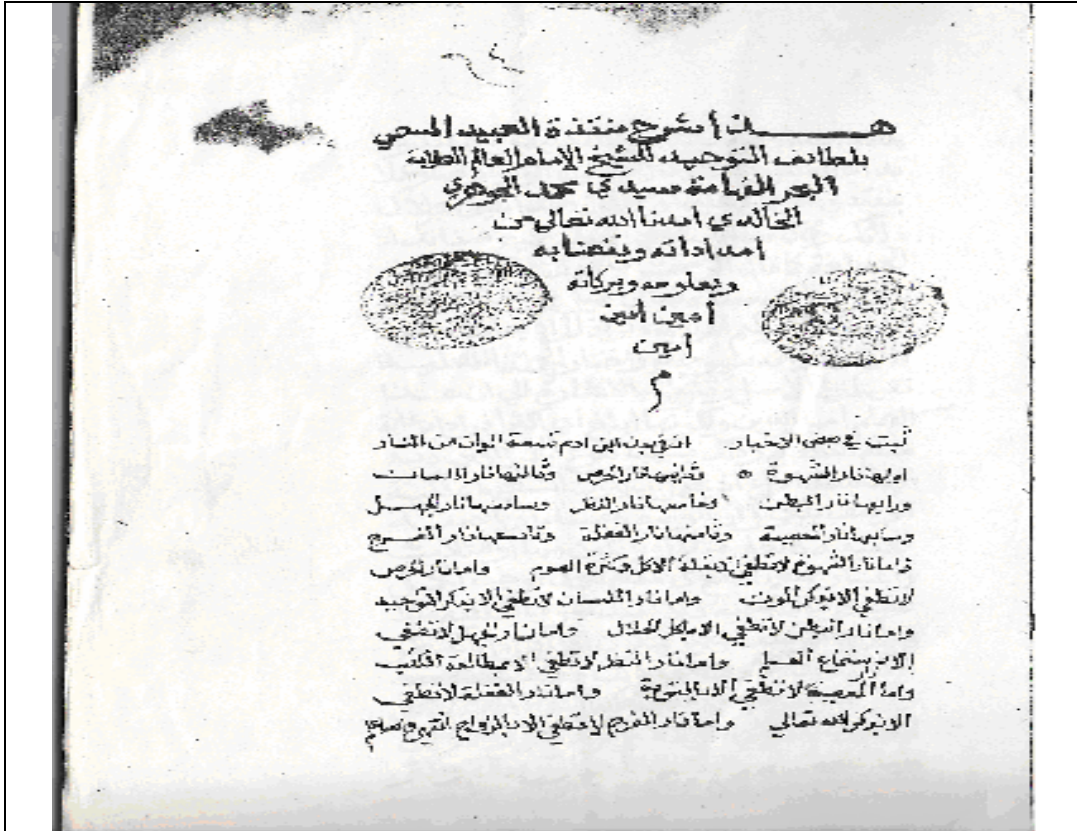 هـــذا شرح منقذة العبيد المسمى
بلطائف التوحيد للشيخ الامام العالم العلامة
البحر الفهامة سيدي محمد الجوهري
الخالدي امدنا الله تعالى من
امداداته ونفعنا به
وبعلومه وبركاته
أمين أمين
امين
م
في بعض الاخبار ان في بدن ابن ادم تسعة الوان من النار
اولها نار الشهوة وثانيها نار الحرص وثالثها نار اللسان
ورابعها نار البطن وخامسها نار النظر وسادسها نار الجهل
وسابعها نار المعصية وثامنها نار الغفلة وتاسعها نار الفرج
واما نار الشهوة لا تطفي الا بقلة الاكل وكثرة الصوم واما نار الحرص
لا تطفي الا بذكر الموت واما نار اللسان لا تطفي الا بذكر التوحيد
واما نار البطن لا تطفي الا باكل الحلال واما نار الجهل لا تطفي
الا باستماع العلم واما نار النظر لا تطفي الا بمطالعة الكتب
واما المعصية لا تطفي الا بالتوبة واما نار الغفلة لا تطفي
الا بذكر الله تعالي واما نار الفرج لا تطفي الا بالزواج